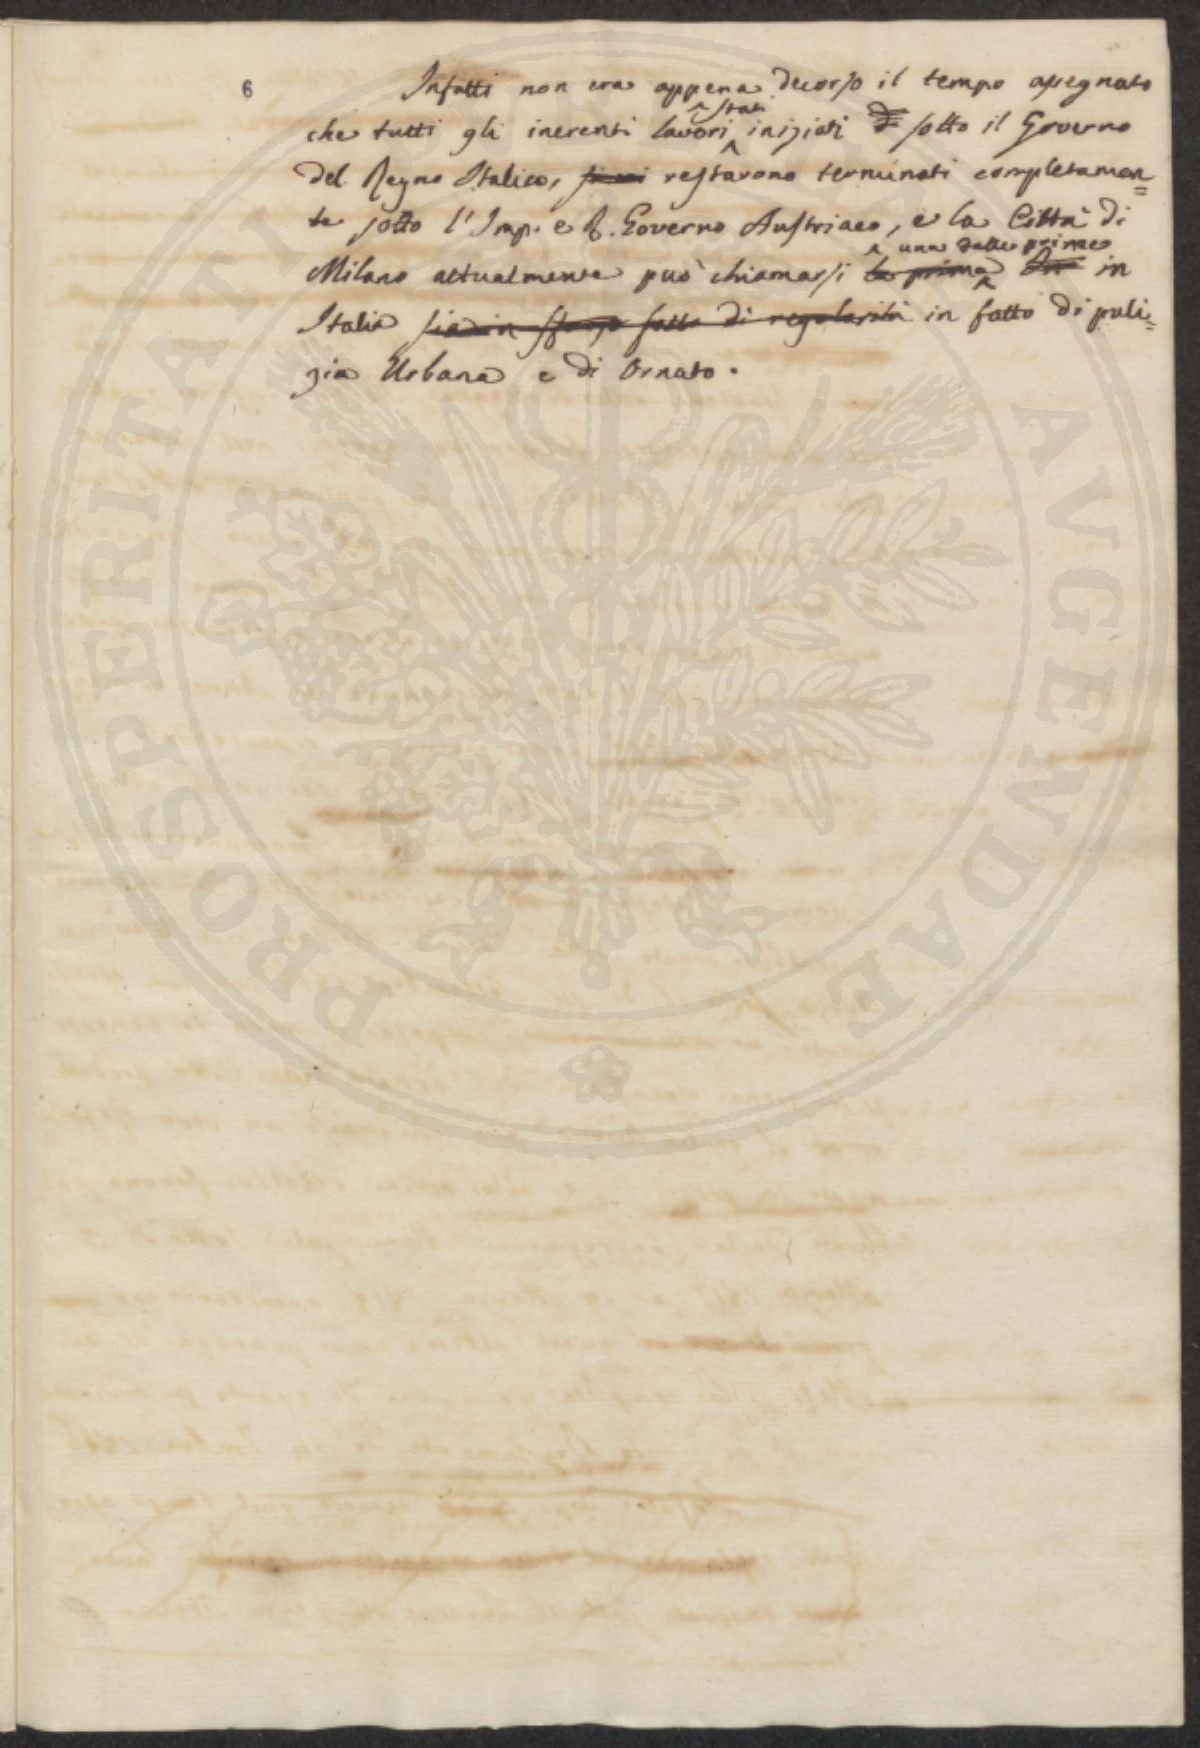 6
Infatti non era appena decorso il tempo assegnato
che tutti gli inerenti lavori ^stati iniziati sotto il Governo
del Regno Italico, restarono terminati completamen=
te sotto l'Imp. e R. Governo Austriaco, e la Città di
Milano attualmente può chiamarsi ~~la prima~~ ^una delle prime in
Italia ~~fatto di regolarità~~ in fatto di puli=
zia Urbana e di Ornato.
PROSPERITATI AVGENDAE